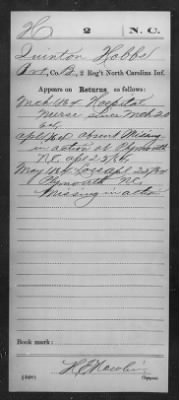 H 2 N.C.
Quinton Hobbs
Co. B, 2 Reg't North Carolina Inf.
Appears on Returns as follows:
Mch 164 Hospital
Nurse since Mch 20
64.
Apl 164 absent Missing
in action at Plymouth
N.C. Apl 20/64.
May 164 Loss Apl 20/64
Plymouth N.C.
Missing in action
Book mark:
Copyist.